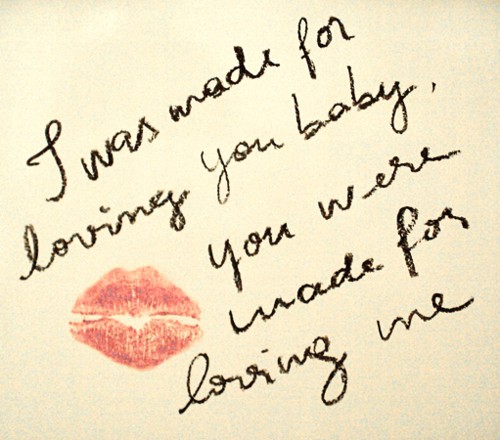 I was made for
loving you baby,
you were
made for
loving me